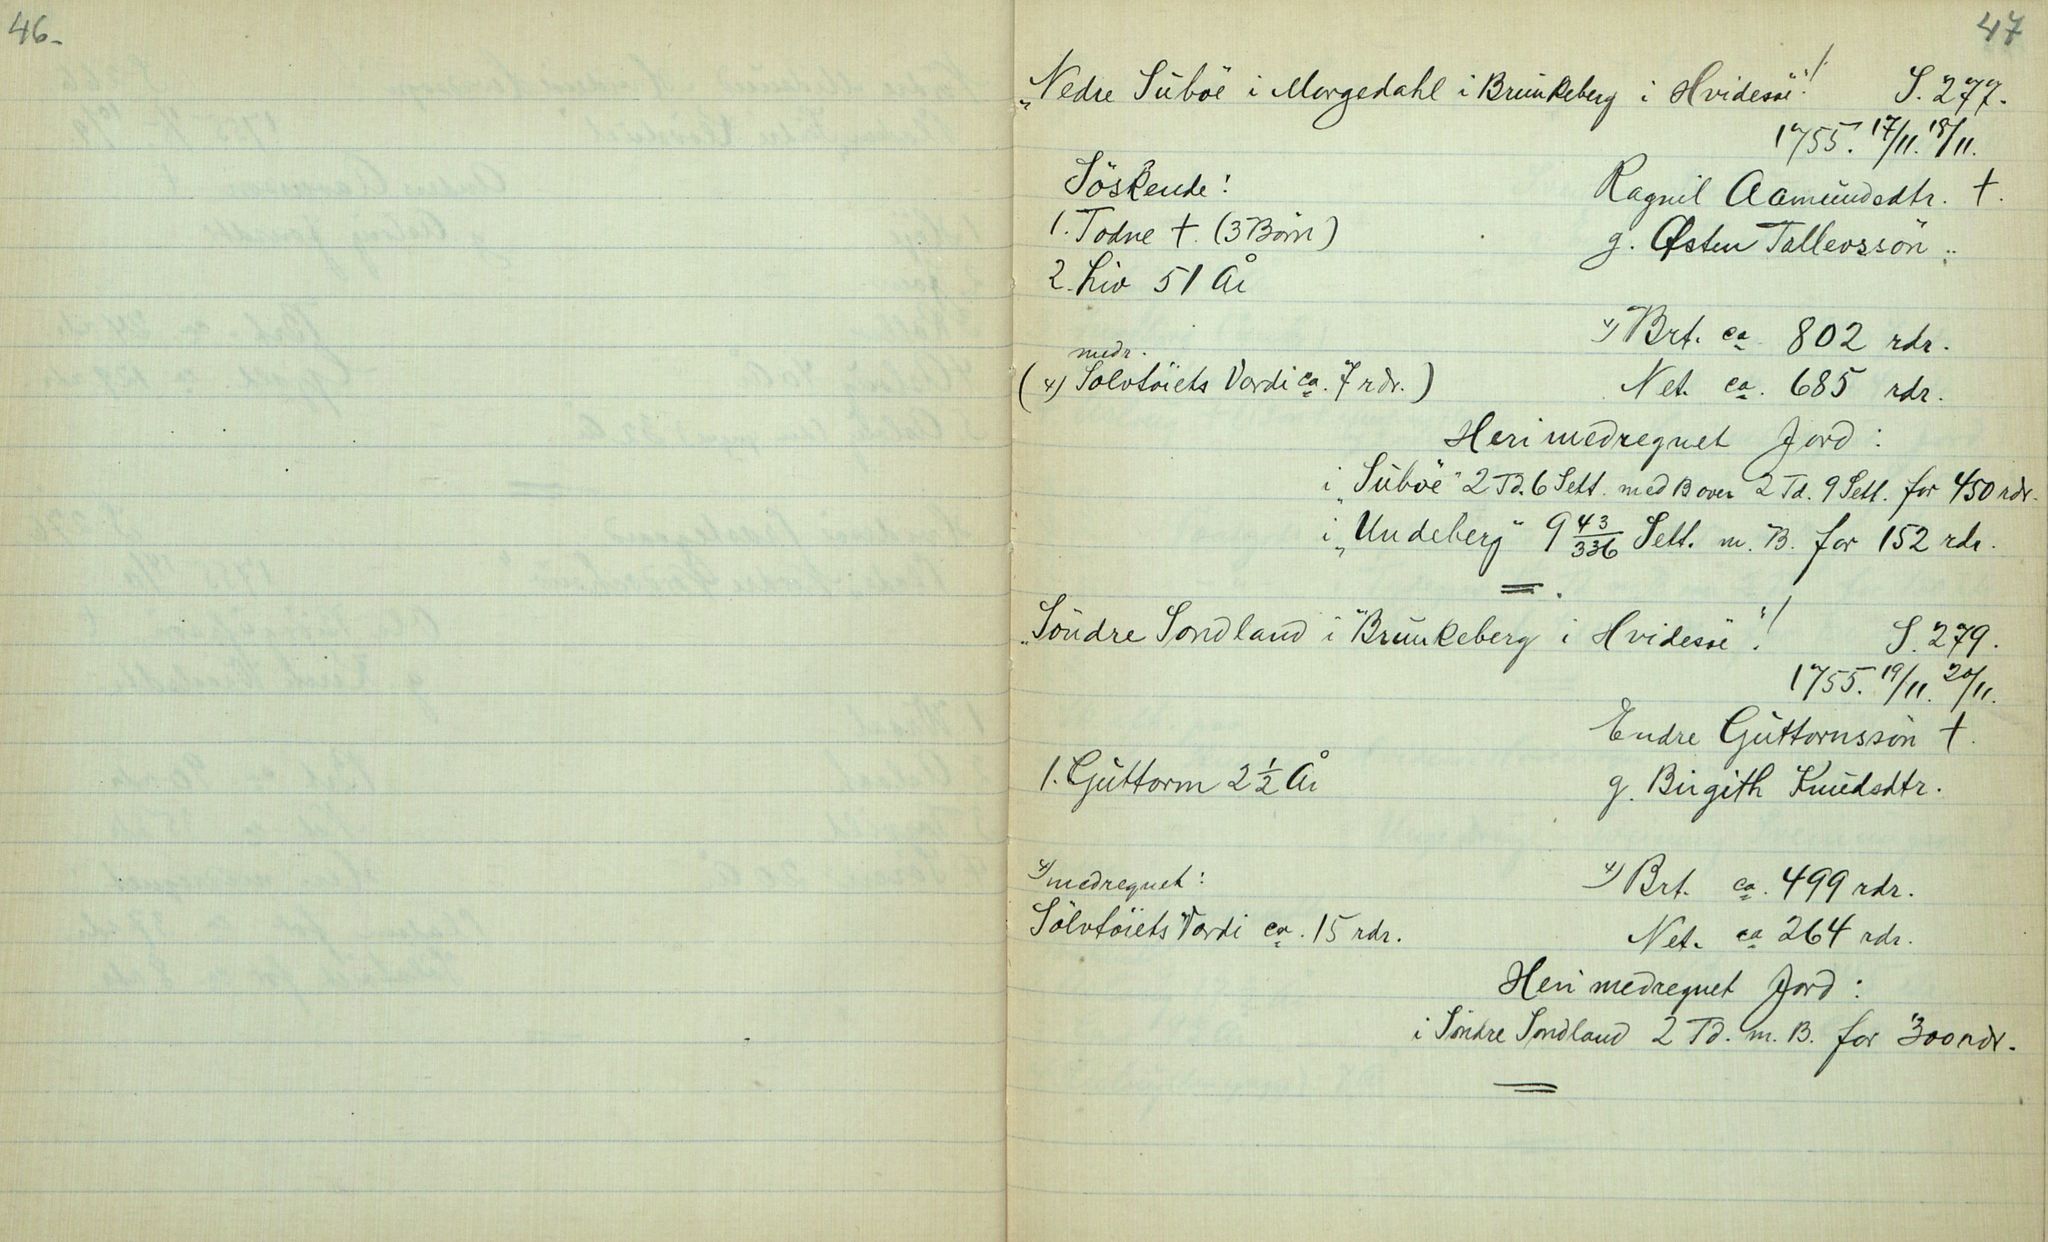 46-
47
„Nedre Súböe i Morgedahl i Brúnkeberg i Hvidesöe"! S. 277.
1755. 17/11. 18/11.
Söskende: Ragnil Aamúndsdtr. †.
1. Todne †. (3 Börn) g. Østen Tallevssön..
2. Liv 51 År
x) Brt. ca 802 rdr.
medr.
(x) Solvtöiets Verdi ca. 7 rdr.) Net. ca. 685 rdr.
Heri medregnet Jord:
i „Súböe" 2 Td. 6 Sett. med B over 2 Td. 9 Sett. for 450 rdr.
i „Undeberg" 9 43/336 Sett. m. B. for 152 rdr.
„Söndre Sondland i Brúnkeberg i Hvidesöe"! S. 279.
1755. 19/11. 20/11.
Endre Gúttormssön †.
1. Gúttorm 2 1/2 År g. Birgith Knúdsdtr.
x) medregnet: x) Brt. ca. 499 rdr.
Sölvtöiets Verdi ca. 15 rdr. Net. ca 264 rdr.
Heri medregnet Jord:
i Söndre Sondland 2 Td. m. B. for 300 rdr.